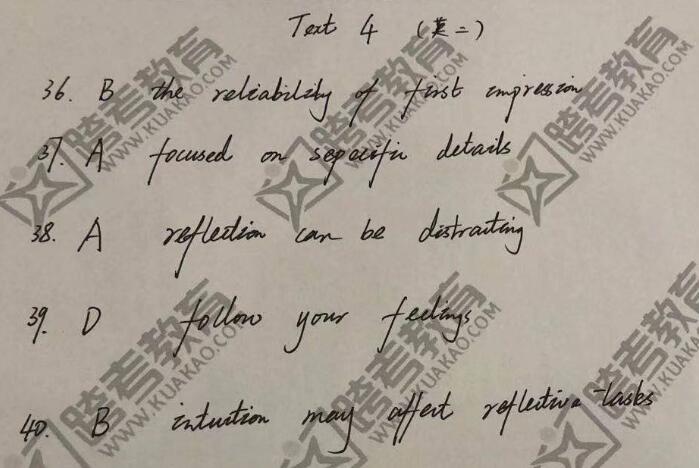 Text 4 (英二)
36. B the reliability of first impression
37. A focused on sepecific details
38. A reflection can be distraiting
39. D follow your feelings
40. B intuition may affect reflective tasks
跨考教育
WWW.KUAKAO.COM
跨考教育
WWW.KUAKAO.COM
跨考教育
WWW.KUAKAO.COM
跨考教育
WWW.KUAKAO.COM
跨考教育
WWW.KUAKAO.COM
跨考教育
WWW.KUAKAO.COM